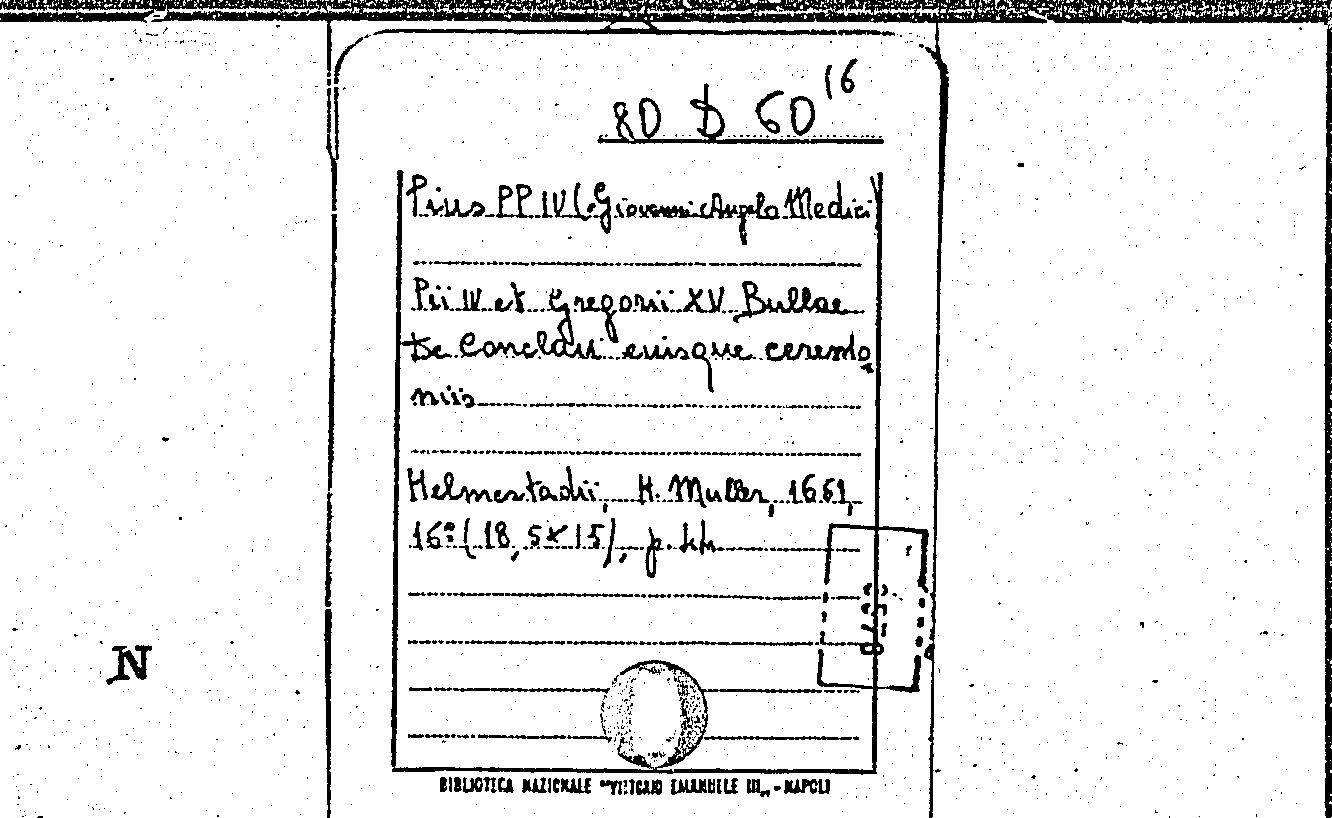 80 D 60 16
Pius PP IV (Giovanni Angelo Medici)
Pii IV et Gregorii XV Bullae
De Conclavi euisque ceremo
niis
Helmestadii, H. Muller, 1661,
16º (18,5x15), p.
N
BIBLIOTECA NAZIONALE "VITTORIO EMANUELE III„ - NAPOLI